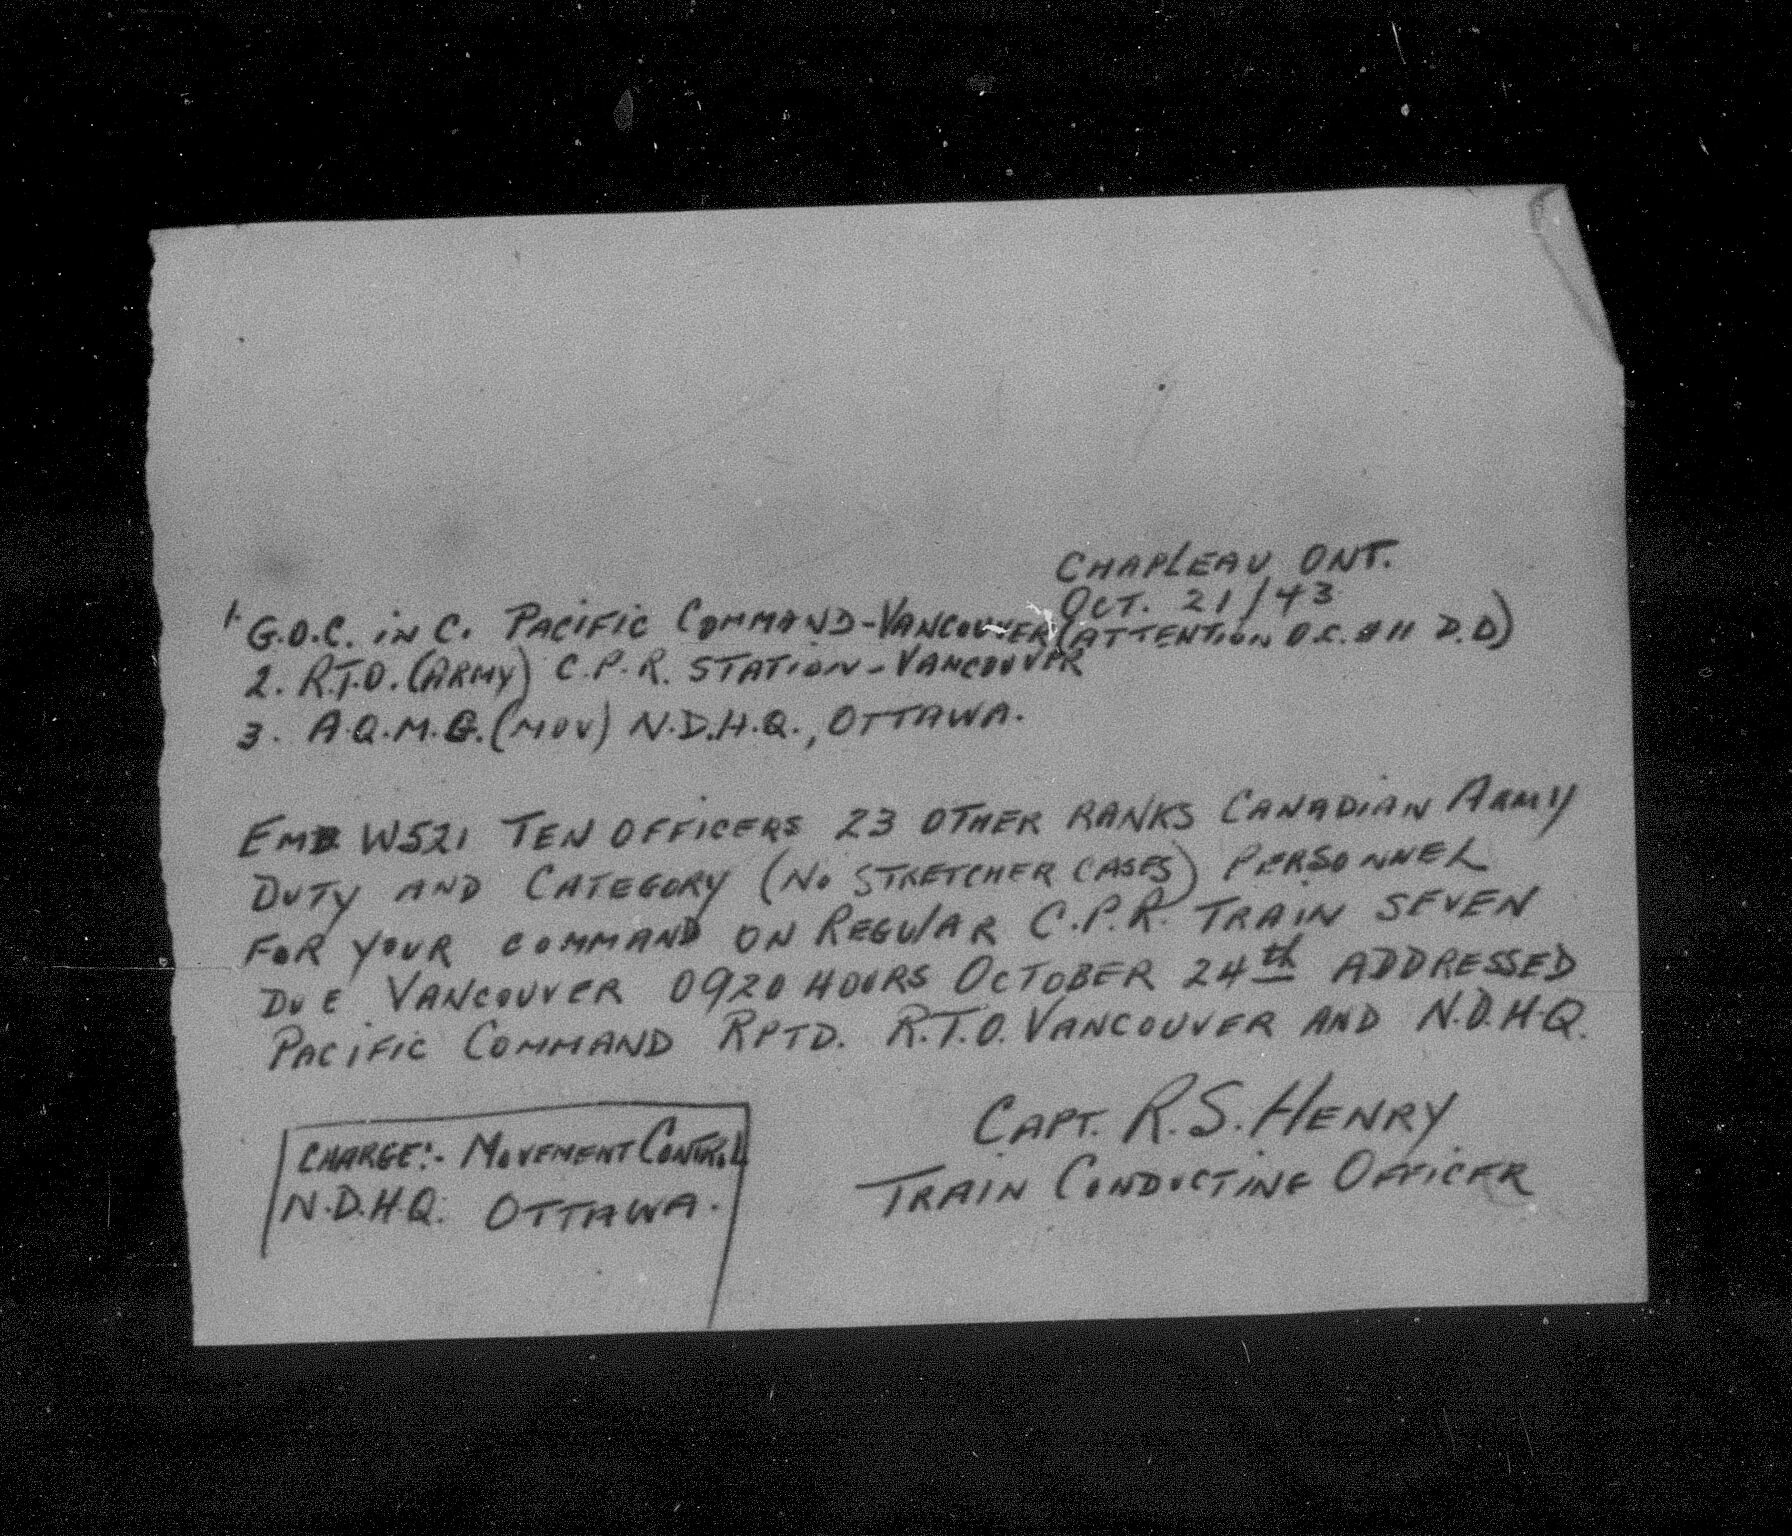 CHAPLEAU ONT.
OCT. 21/43
1. G.O.C. in C. PACIFIC COMMAND-VANCOUVER (ATTENTION O.C. #11 D.D)
2. R.T.O. (ARMY) C.P.R. STATION-VANCOUVER
3. A.Q.M.G. (MOV) N.D.H.Q., OTTAWA.
EMB W521 TEN OFFICERS 23 OTHER RANKS CANADIAN ARMY
DUTY AND CATEGORY (NO STRETCHER CASES) PERSONNEL
FOR YOUR COMMAND ON REGULAR C.P.R. TRAIN SEVEN
DUE VANCOUVER 0920 HOURS OCTOBER 24th ADDRESSED
PACIFIC COMMAND RPTD. R.T.O. VANCOUVER AND N.D.H.Q.
CAPT. R.S. HENRY
TRAIN CONDUCTING OFFICER
CHARGE:- MOVEMENT CONTROL
N.D.H.Q. OTTAWA.